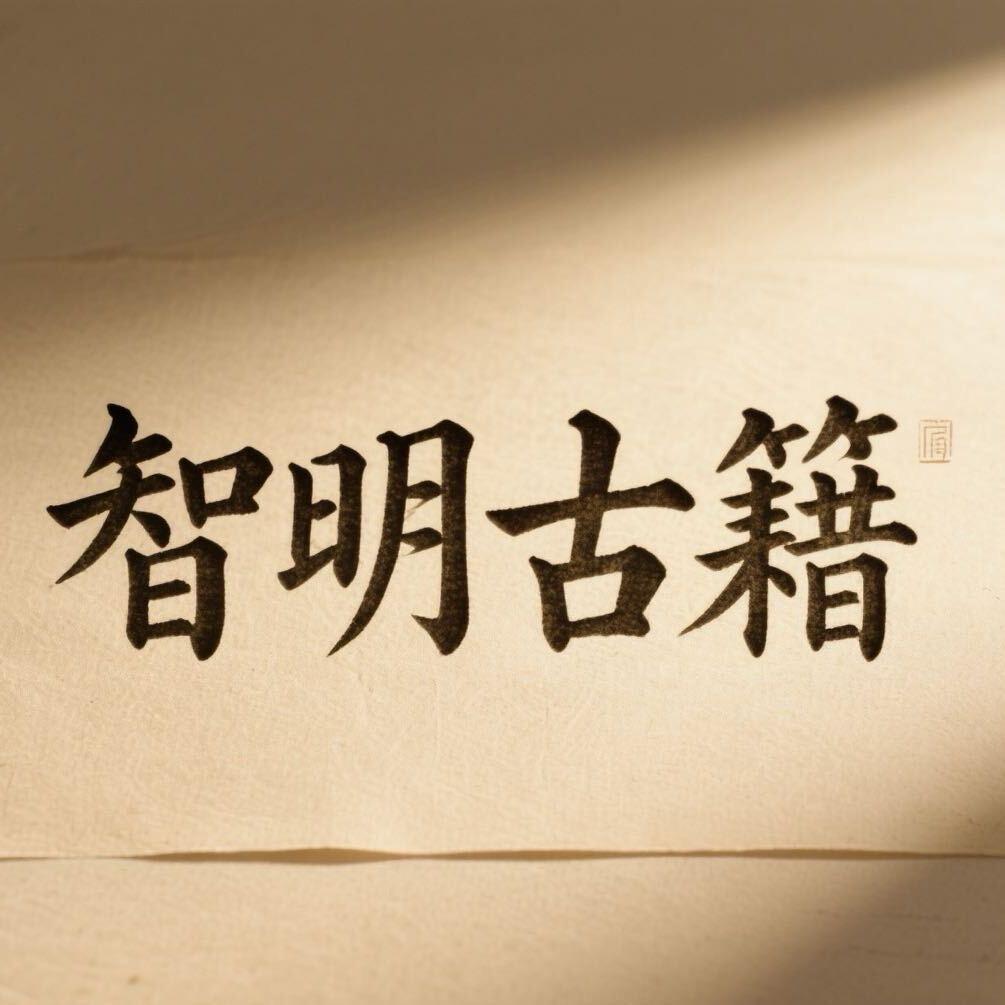 智明古籍